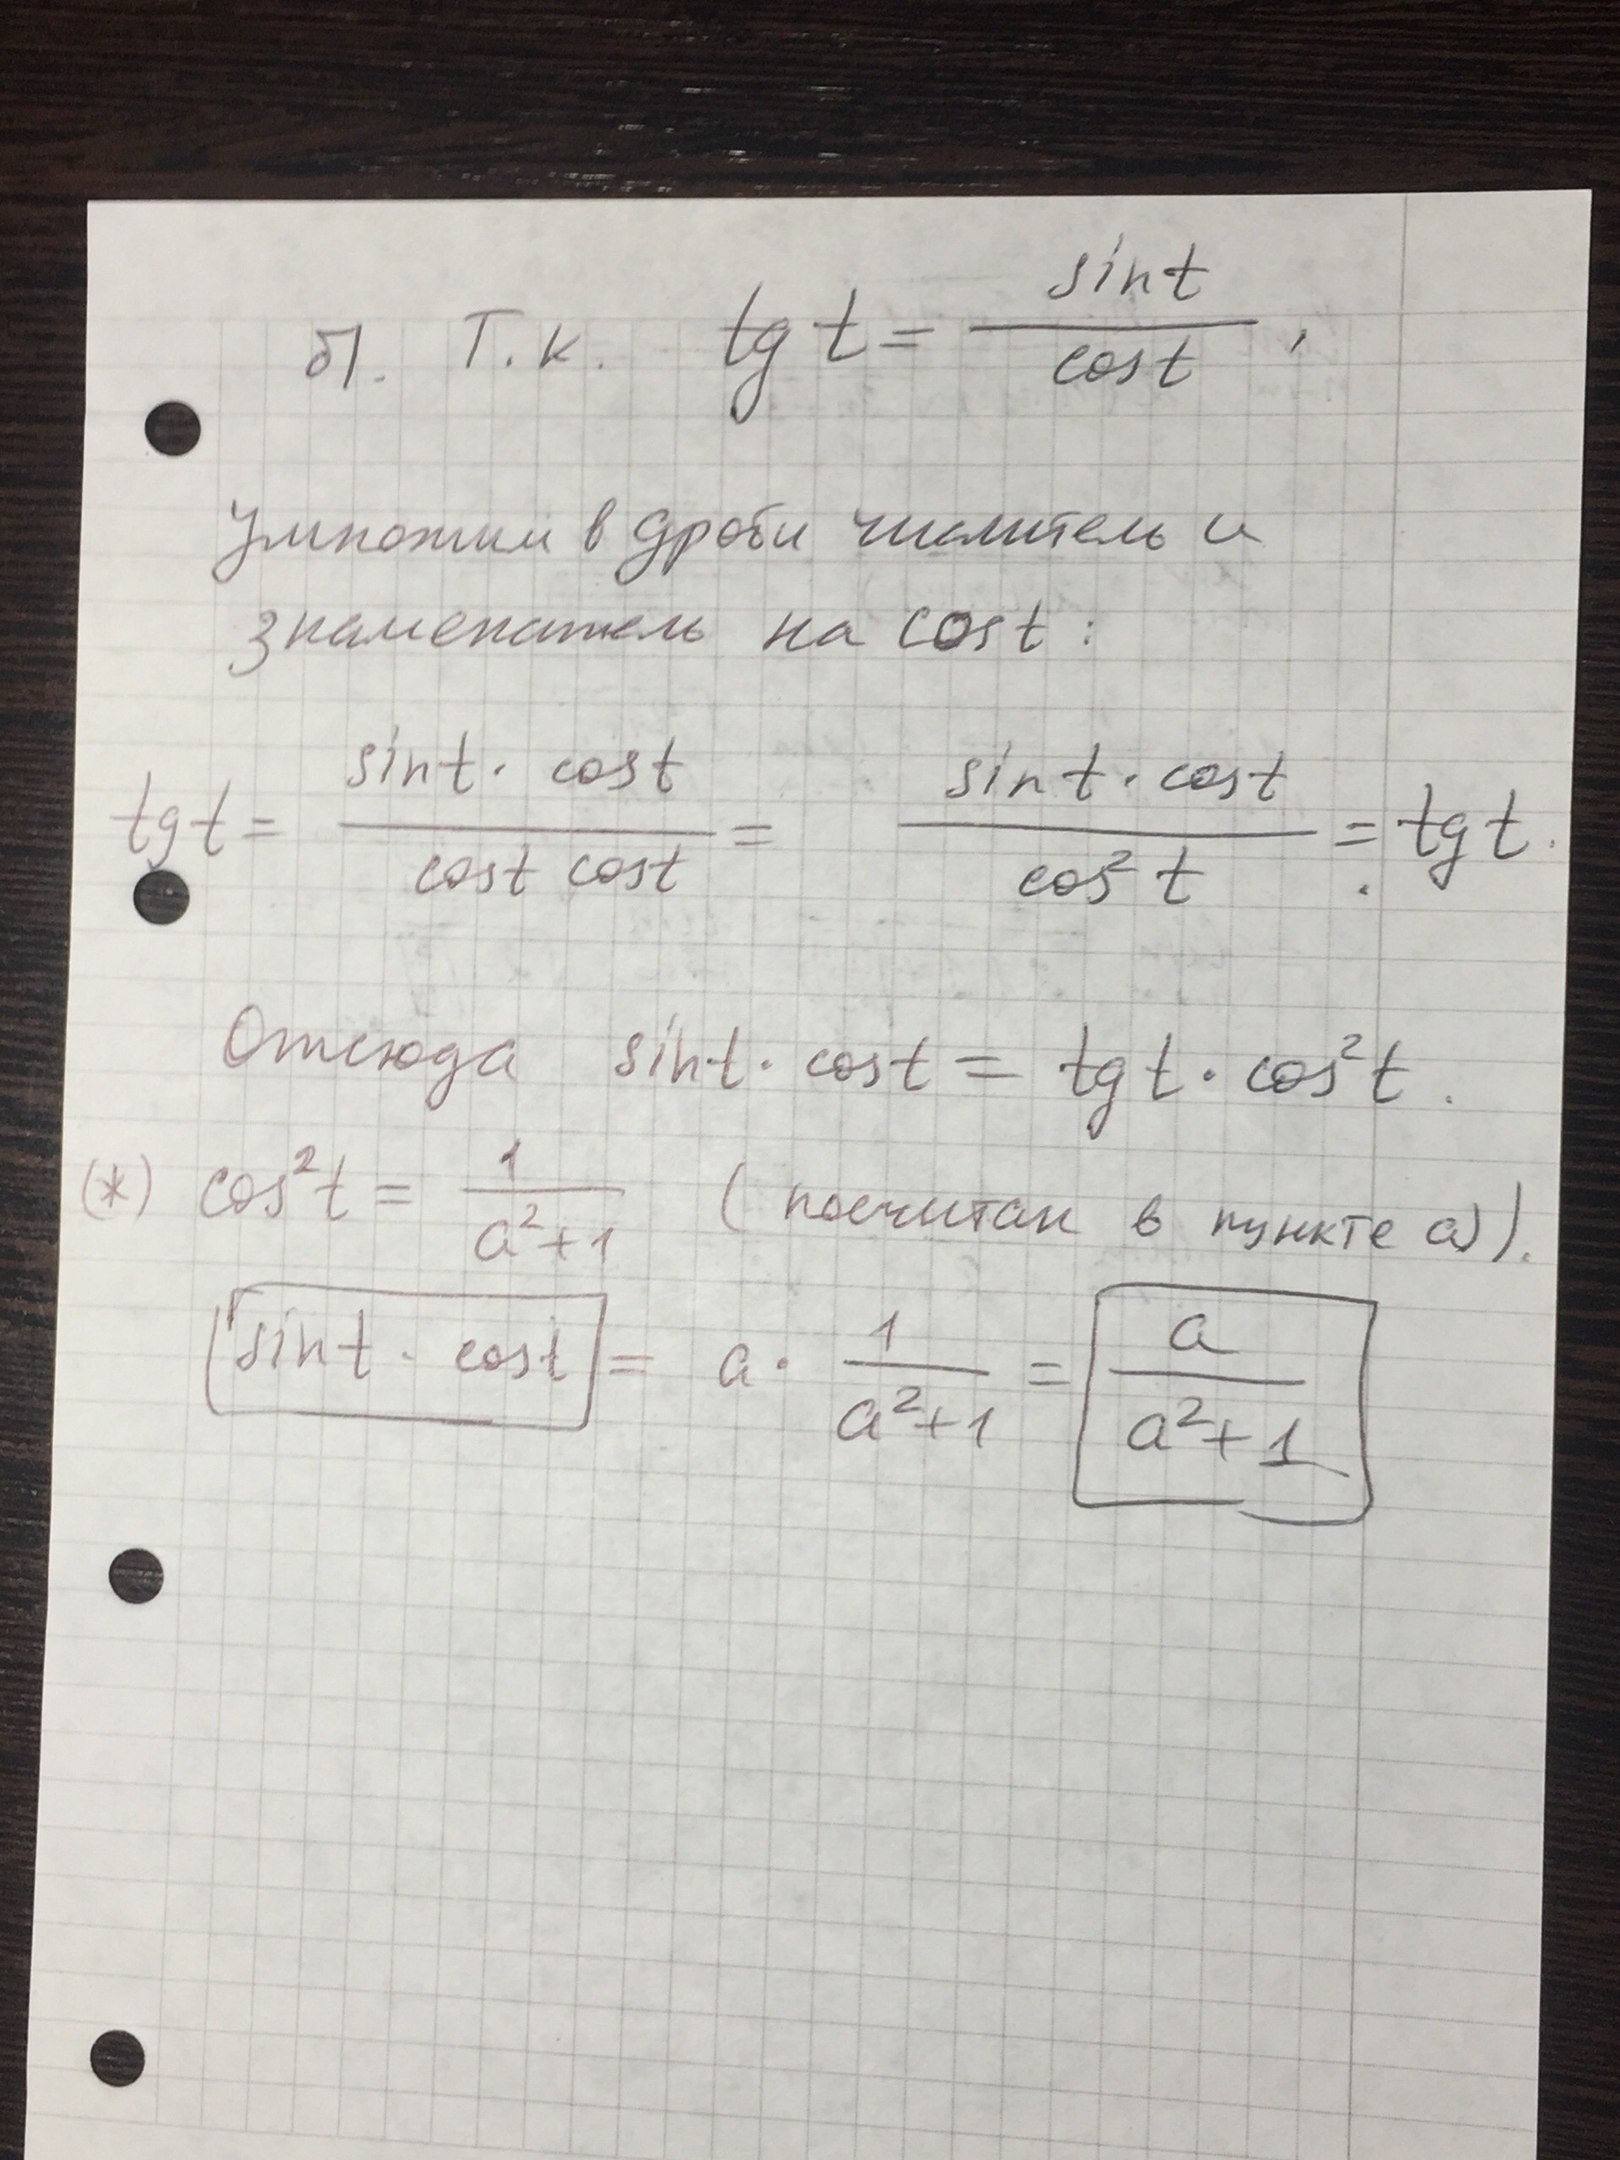 б). Т.к. tg t = sin t / cos t ,
Умножим в дроби числитель и
знаменатель на cos t :
tg t = sin t · cos t / cos t cos t = sin t · cos t / cos² t = tg t.
Отсюда sin t · cos t = tg t · cos² t .
(*) cos² t = 1 / a² + 1 (посчитан в пункте а)).
sin t · cos t = a · 1 / a² + 1 = a / a² + 1